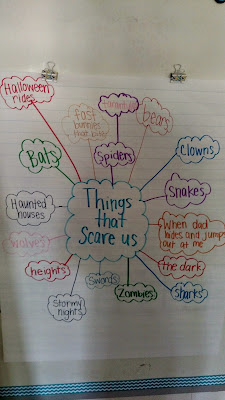 Halloween
rides
fast
bunnies
that bite
bears
Bats
Spiders
Clowns
Things
that
Scare us
Snakes
Haunted
houses
When dad
hides and jumps
out at me
wolves
heights
the dark
Swords
Stormy
nights
Zombies
sharks